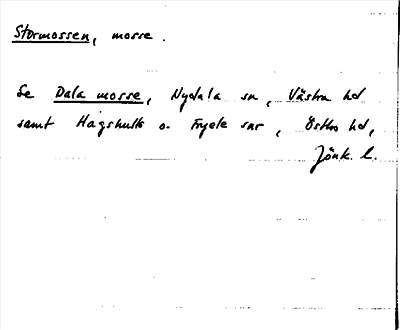 Stormossen, mosse.
Se Dala mosse, Nydala sn, Västra hd
samt Hagshults o. Fryele snr, Östbo hd,
Jönk. l.